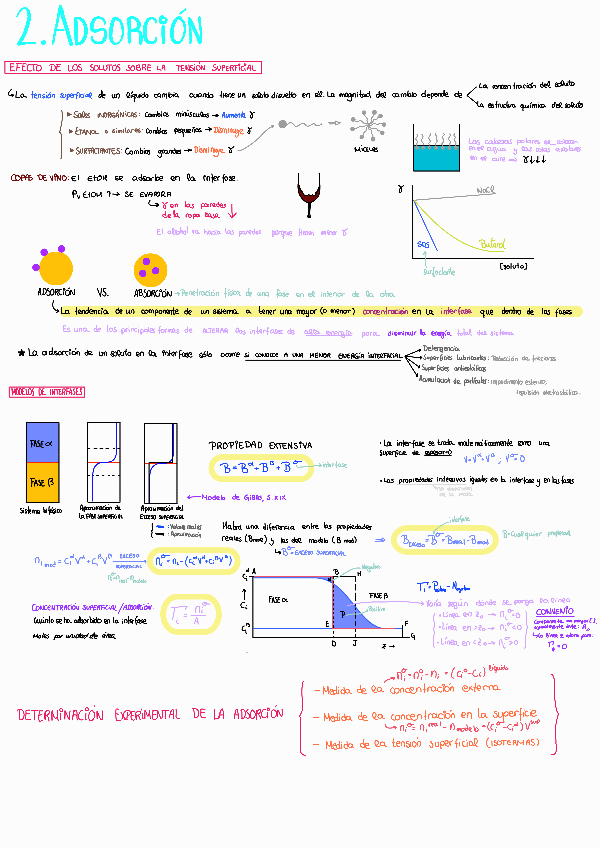 2. ADSORCIÓN
EFECTO DE LOS SOLUTOS SOBRE LA TENSIÓN SUPERFICIAL
↳ La tensión superficial de un líquido cambia cuando tiene un soluto disuelto en él. La magnitud del cambio depende de
La concentración del soluto
La estructura química del soluto
► SALES INORGÁNICAS: Cambios minúsculos → Aumenta γ
► ETANOL o similares: Cambios pequeños → Disminuye γ
► SURFACTANTES: Cambios grandes → Disminuye γ
MICELAS
Las cabezas polares se
en el agua y las colas apolares
en el aire ⇒ γ↓↓↓
COPAS DE VINO: El EtOH se adsorbe en la interfase.
Pv EtOH ↑ → SE EVAPORA
↳ γ en las paredes
de la copa baja ↓
El alcohol va hacia las paredes porque tienen menor γ
γ
NaCl
SDS
Butanol
Surfactante
[soluto]
ADSORCIÓN VS. ABSORCIÓN → Penetración física de una fase en el interior de la otra
↳ La tendencia de un componente de un sistema a tener una mayor (o menor) concentración en la interfase que dentro de las fases
Es una de las principales formas de ALTERAR las interfases de alta energía para disminuir la energía total del sistema
★ La adsorción de un soluto en la interfase sólo ocurre SI CONDUCE A UNA MENOR ENERGÍA INTERFACIAL
Detergencia
Superficies lubricantes: Reducción de fricciones
Superficies antiestáticas
Acumulación de partículas: impedimento estérico,
repulsión electrostática.
MODELOS DE INTERFASES
FASE α
FASE β
Sistema bifásico
Aproximación de
LA FASE SUPERFICIAL
Aproximación del
EXCESO SUPERFICIAL
: Valores reales
: Aproximación
PROPIEDAD EXTENSIVA
B = Bα + Bβ + Bσ → interfase
← Modelo de GIBBS, S. XIX
• La interfase se trata matemáticamente como una
superficie de espesor 0
V = Vα + Vβ ; Vσ = 0
• Las propiedades intensivas iguales en la interfase y en las fases
Habrá una diferencia entre las propiedades
reales (Breal) y las del modelo (Bmod)
↳ Bσ = EXCESO SUPERFICIAL
⇒
interfase
Bexceso = Bσ = Breal - Bmod
B = Cualquier propiedad
ni mod = ciα Vα + ciβ Vβ
EXCESO
SUPERFICIAL
niσ = ni - (ciα Vα + ciβ Vβ)
CONCENTRACIÓN SUPERFICIAL / ADSORCIÓN:
Cuánto se ha adsorbido en la interfase
Moles por unidad de área
Γi = niσ / A
Ciα A
B
H
Negativa
↑
Ci
FASE α
FASE β
P
Positiva
Ciβ
E
F
G
D
J
z →
Γi = Positiva - Negativa
→ Varía según dónde se ponga la línea
• Línea en z0 → niσ = 0
• Línea en >z0 → niσ < 0
• Línea en <z0 → niσ > 0
CONVENIO
Γ0 = 0
DETERMINACIÓN EXPERIMENTAL DE LA ADSORCIÓN
líquido
— Medida de la concentración externa
— Medida de la concentración en la superficie
— Medida de la tensión superficial (ISOTERMAS)